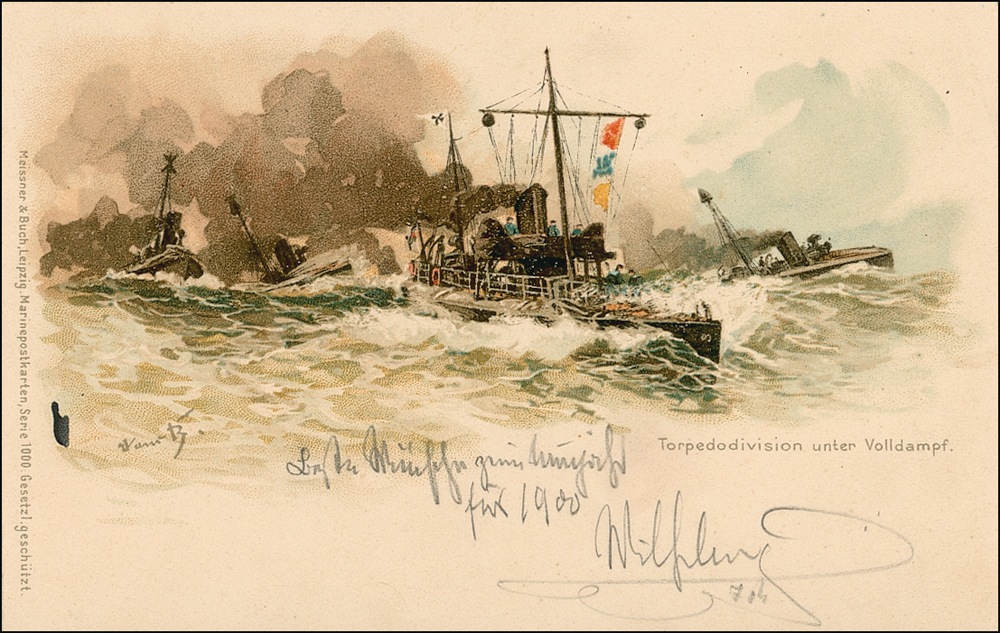 Meissner & Buch, Leipzig Marinepostkarten, Serie 1000. Gesetzl. geschützt.
Torpedodivision unter Volldampf.
Beste Wünsche zum Neujahr
für 1900
Wilhelm